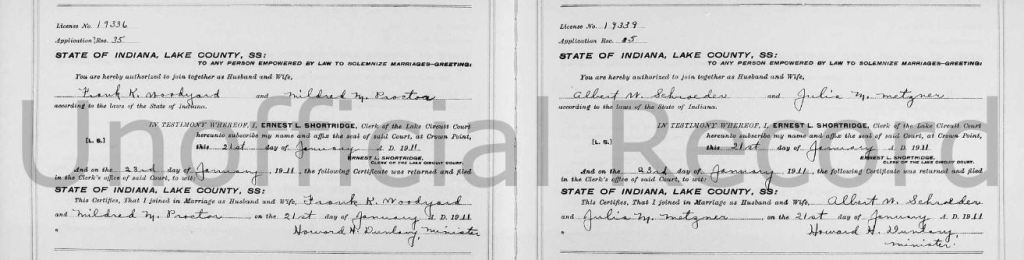 License No. 19336
Application Rec. 35
STATE OF INDIANA, LAKE COUNTY, SS:
TO ANY PERSON EMPOWERED BY LAW TO SOLEMNIZE MARRIAGES—GREETING:
You are hereby authorized to join together as Husband and Wife,
Frank K. Woodyard and Mildred M. Proctor
according to the laws of the State of Indiana.
IN TESTIMONY WHEREOF, I, ERNEST L. SHORTRIDGE, Clerk of the Lake Circuit Court
hereunto subscribe my name and affix the seal of said Court, at Crown Point,
[L. S.]
this 21st day of January A. D. 1911
ERNEST L. SHORTRIDGE,
CLERK OF THE LAKE CIRCUIT COURT.
And on the 23rd day of January, 1911, the following Certificate was returned and filed
in the Clerk's office of said Court, to wit:
STATE OF INDIANA, LAKE COUNTY, SS:
This Certifies, That I joined in Marriage as Husband and Wife, Frank K. Woodyard
and Mildred M. Proctor on the 21st day of January A. D. 1911
Howard H. Dunlavy, minister
License No. 19339
Application Rec. 35
STATE OF INDIANA, LAKE COUNTY, SS:
TO ANY PERSON EMPOWERED BY LAW TO SOLEMNIZE MARRIAGES—GREETING:
You are hereby authorized to join together as Husband and Wife,
Albert W. Schroeder and Julia M. Metzner
according to the laws of the State of Indiana.
IN TESTIMONY WHEREOF, I, ERNEST L. SHORTRIDGE, Clerk of the Lake Circuit Court
hereunto subscribe my name and affix the seal of said Court, at Crown Point,
[L. S.]
this 21st day of January A. D. 1911
ERNEST L. SHORTRIDGE,
CLERK OF THE LAKE CIRCUIT COURT.
And on the 23rd day of January, 1911, the following Certificate was returned and filed
in the Clerk's office of said Court, to wit:
STATE OF INDIANA, LAKE COUNTY, SS:
This Certifies, That I joined in Marriage as Husband and Wife, Albert W. Schroeder
and Julia M. Metzner on the 21st day of January A. D. 1911
Howard H. Dunlavy,
minister.
Unofficial Record